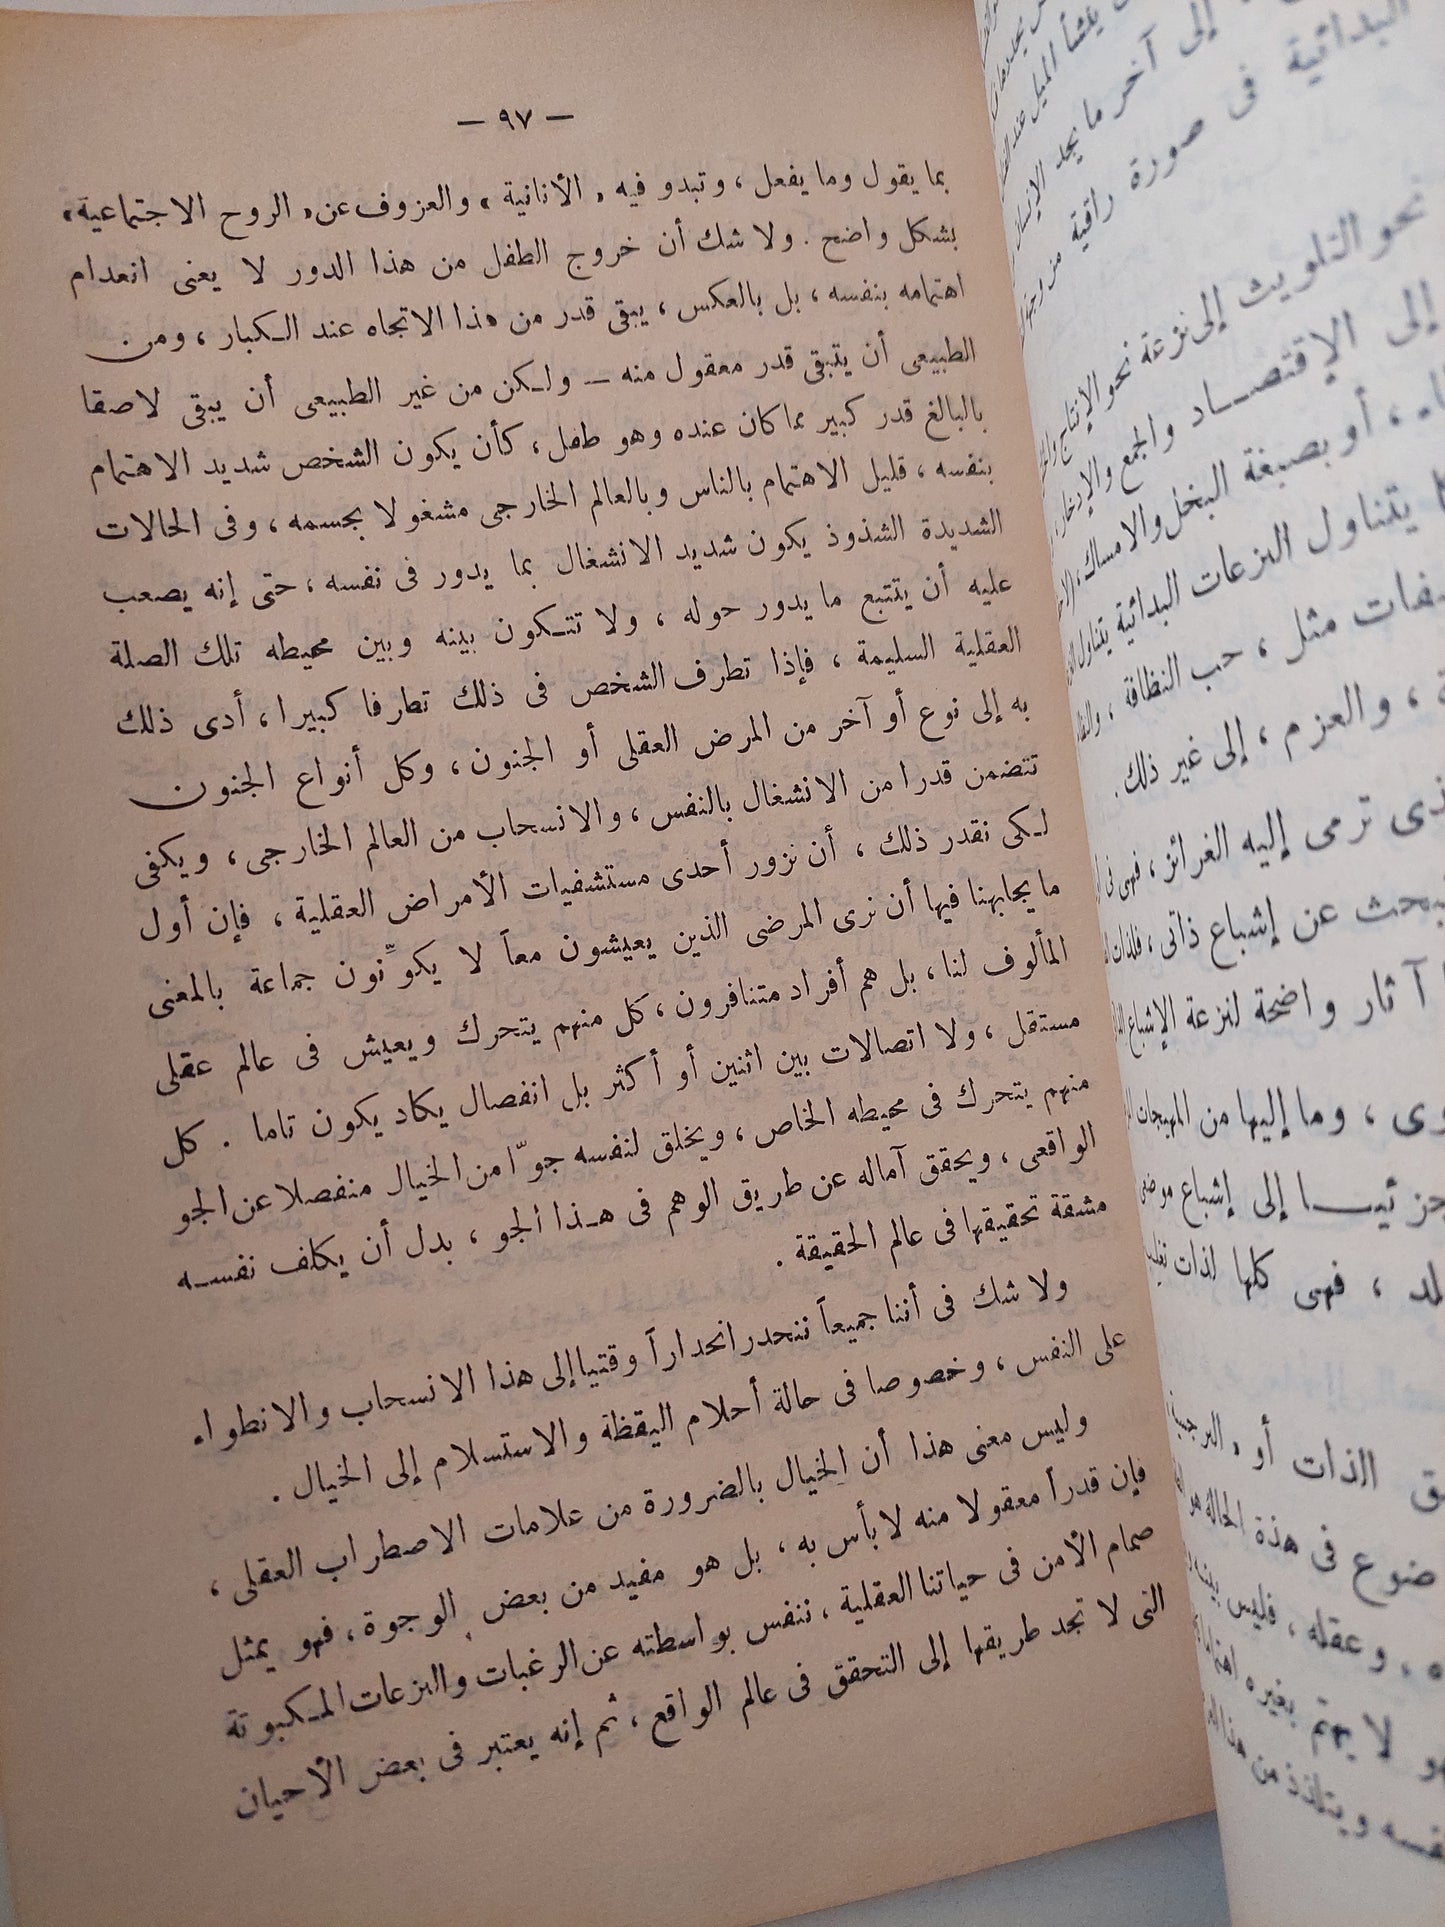 — ٩٧ —
بما يقول وما يفعل ، وتبدو فيه « الأنانية » والعزوف عن « الروح الاجتماعية »
بشكل واضح . ولا شك أن خروج الطفل من هذا الدور لا يعنى انعدام
اهتمامه بنفسه ، بل بالعكس ، يبقى قدر من هذا الاتجاه عند الكبار ، ومن
الطبيعى أن يتبقى قدر معقول منه — ولكن من غير الطبيعى أن يبقى لاصقا
بالبالغ قدر كبير مما كان عنده وهو طفل ، كأن يكون الشخص شديد الاهتمام
بنفسه ، قليل الاهتمام بالناس وبالعالم الخارجى مشغولا بجسمه ، وفى الحالات
الشديدة الشذوذ يكون شديد الانشغال بما يدور فى نفسه ، حتى إنه يصعب
عليه أن يتتبع ما يدور حوله ، ولا تتكون بينه وبين محيطه تلك الصلة
العقلية السليمة ، فإذا تطرف الشخص فى ذلك تطرفا كبيرا ، أدى ذلك
به إلى نوع أو آخر من المرض العقلى أو الجنون ، وكل أنواع الجنون
تتضمن قدرا من الانشغال بالنفس ، والانسحاب من العالم الخارجى ، ويكفى
لكى نقدر ذلك ، أن نزور أحدى مستشفيات الأمراض العقلية ، فإن أول
ما يجابهنا فيها أن نرى المرضى الذين يعيشون معاً لا يكوِّنون جماعة بالمعنى
المألوف لنا ، بل هم أفراد متنافرون ، كل منهم يتحرك ويعيش فى عالم عقلى
مستقل ، ولا اتصالات بين اثنين أو أكثر بل انفصال يكاد يكون تاما . كل
منهم يتحرك فى محيطه الخاص ، ويخلق لنفسه جوّا من الخيال منفصلا عن الجو
الواقعى ، ويحقق آماله عن طريق الوهم فى هذا الجو ، بدل أن يكلف نفسه
مشقة تحقيقها فى عالم الحقيقة .
ولا شك فى أننا جميعاً ننحدر انحداراً وقتيا إلى هذا الانسحاب والانطواء
على النفس ، وخصوصا فى حالة أحلام اليقظة والاستسلام إلى الخيال .
وليس معنى هذا أن الخيال بالضرورة من علامات الاصطراب العقلى ،
فإن قدراً معقولا منه لا بأس به ، بل هو مفيد من بعض الوجوة ، فهو يمثل
صمام الأمن فى حياتنا العقلية ، ننفس بواسطته عن الرغبات والنزعات المكبوتة
التى لا تجد طريقها إلى التحقق فى عالم الواقع ، ثم إنه يعتبر فى بعض الأحيان
إلى آخر ما يجد الإنسان
البدائية فى صورة راقية
نحو التلويث إلى نزعة نحو الإنتاج
إلى الإقتصاد والجمع والإدخار
أو بصبغة البخل والامساك
يتناول النزعات البدائية يتناول
مثل ، حب النظافة
، والعزم ، إلى غير ذلك .
ترمى إليه الغرائز ، فهى فى
عن إشباع ذاتى ، فلذات
آثار واضحة لنزعة الإشباع
، وما إليها من المهيجات
إلى إشباع
، فهى كلها لذات
الذات أو « النرجسية
فى هذة الحالة هو
، وعقله ، فليس
لا يهتم بغيره
ويتلذذ من هذا